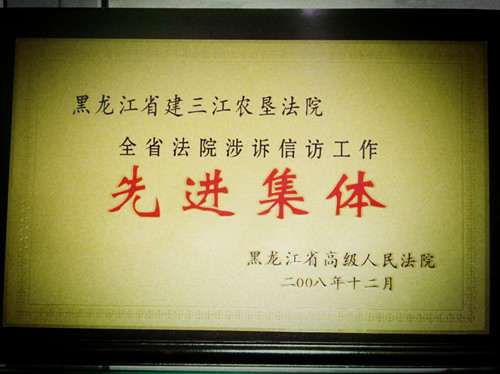 黑龙江省建三江农垦法院
全省法院涉诉信访工作
先进集体
黑龙江省高级人民法院
二00八年十二月